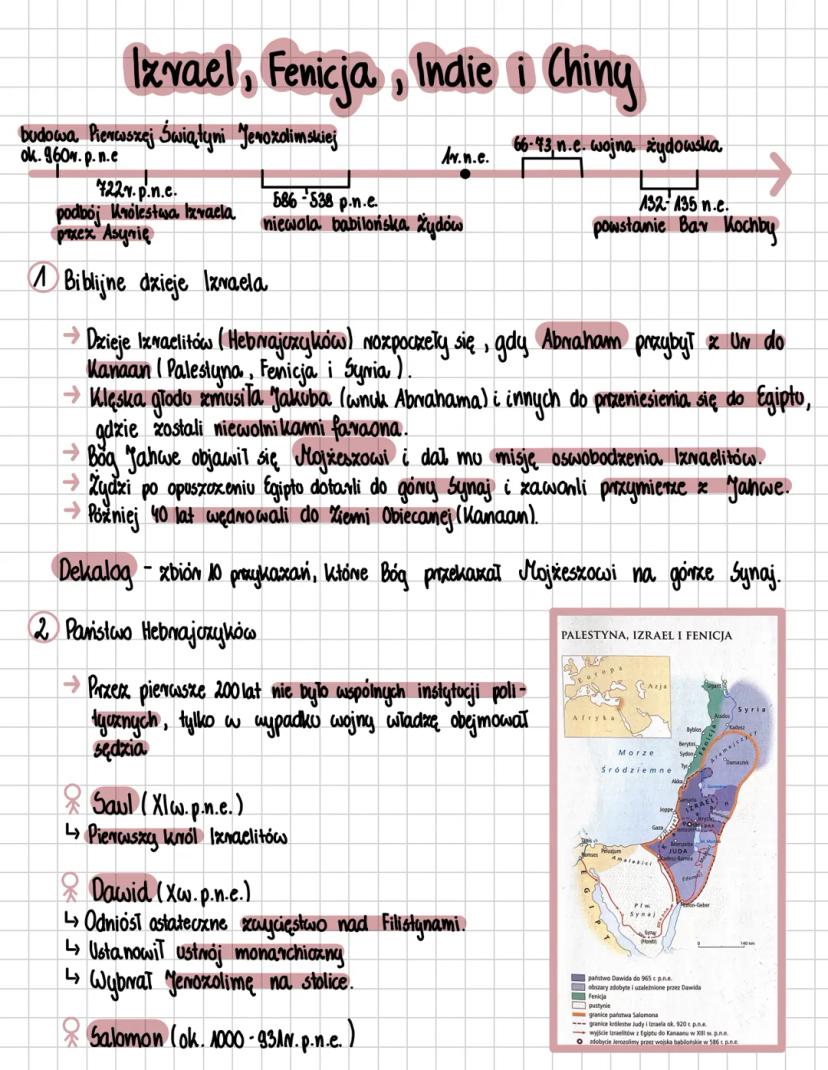 Izrael, Fenicja, Indie i Chiny
budowa Pierwszej Świątyni Jerozolimskiej
ok. 960r. p.n.e
1r. n.e.
66-73 n.e. wojna żydowska
722r. p.n.e.
podbój Królestwa Izraela
przez Asyrię
586 - 538 p.n.e.
niewola babilońska Żydów
132-135 n.e.
powstanie Bar Kochby
1 Biblijne dzieje Izraela
→ Dzieje Izraelitów (Hebrajczyków) rozpoczęły się, gdy Abraham przybył z Ur do
Kanaan (Palestyna, Fenicja i Syria).
→ Klęska głodu zmusiła Jakuba (wnuk Abrahama) i innych do przeniesienia się do Egiptu,
gdzie zostali niewolnikami faraona.
→ Bóg Jahwe objawił się Mojżeszowi i dał mu misję oswobodzenia Izraelitów.
→ Żydzi po opuszczeniu Egiptu dotarli do góry Synaj i zawarli przymierze z Jahwe.
→ Później 40 lat wędrowali do Ziemi Obiecanej (Kanaan).
Dekalog - zbiór 10 przykazań, które Bóg przekazał Mojżeszowi na górze Synaj.
2 Państwo Hebrajczyków
→ Przez pierwsze 200 lat nie było wspólnych instytucji poli-
tycznych, tylko w wypadku wojny władzę obejmował
sędzia
Saul (XI w. p.n.e.)
↳ Pierwszy król Izraelitów
Dawid (X w. p.n.e.)
↳ Odniósł ostateczne zwycięstwo nad Filistynami.
↳ Ustanowił ustrój monarchiczny
↳ Wybrał Jerozolimę na stolice.
Salomon (ok. 1000 - 931r. p.n.e.)
PALESTYNA, IZRAEL I FENICJA
Europa
Azja
Afryka
Ugarit
Syria
Arados
Kadesz
Byblos
Fenicja
Berytos
Sydon
Aramejczycy
Damaszek
Tyr
Morze
Śródziemne
Akka
Samaria
IZRAEL
Joppe
Gaza
JUDA
Tanis
Peluzjum
Ramses
Amalekici
Kadesz-Barnea
Edomici
EGIPT
Płw.
Synaj
Synaj
(Horeb)
0 140 km
państwo Dawida do 965 r. p.n.e.
obszary zdobyte i uzależnione przez Dawida
Fenicja
pustynie
granice państwa Salomona
granice królestw Judy i Izraela ok. 920 r. p.n.e.
wyjście Izraelitów z Egiptu do Kanaanu w XIII w. p.n.e.
zdobycie Jerozolimy przez wojska babilońskie w 586 r. p.n.e.